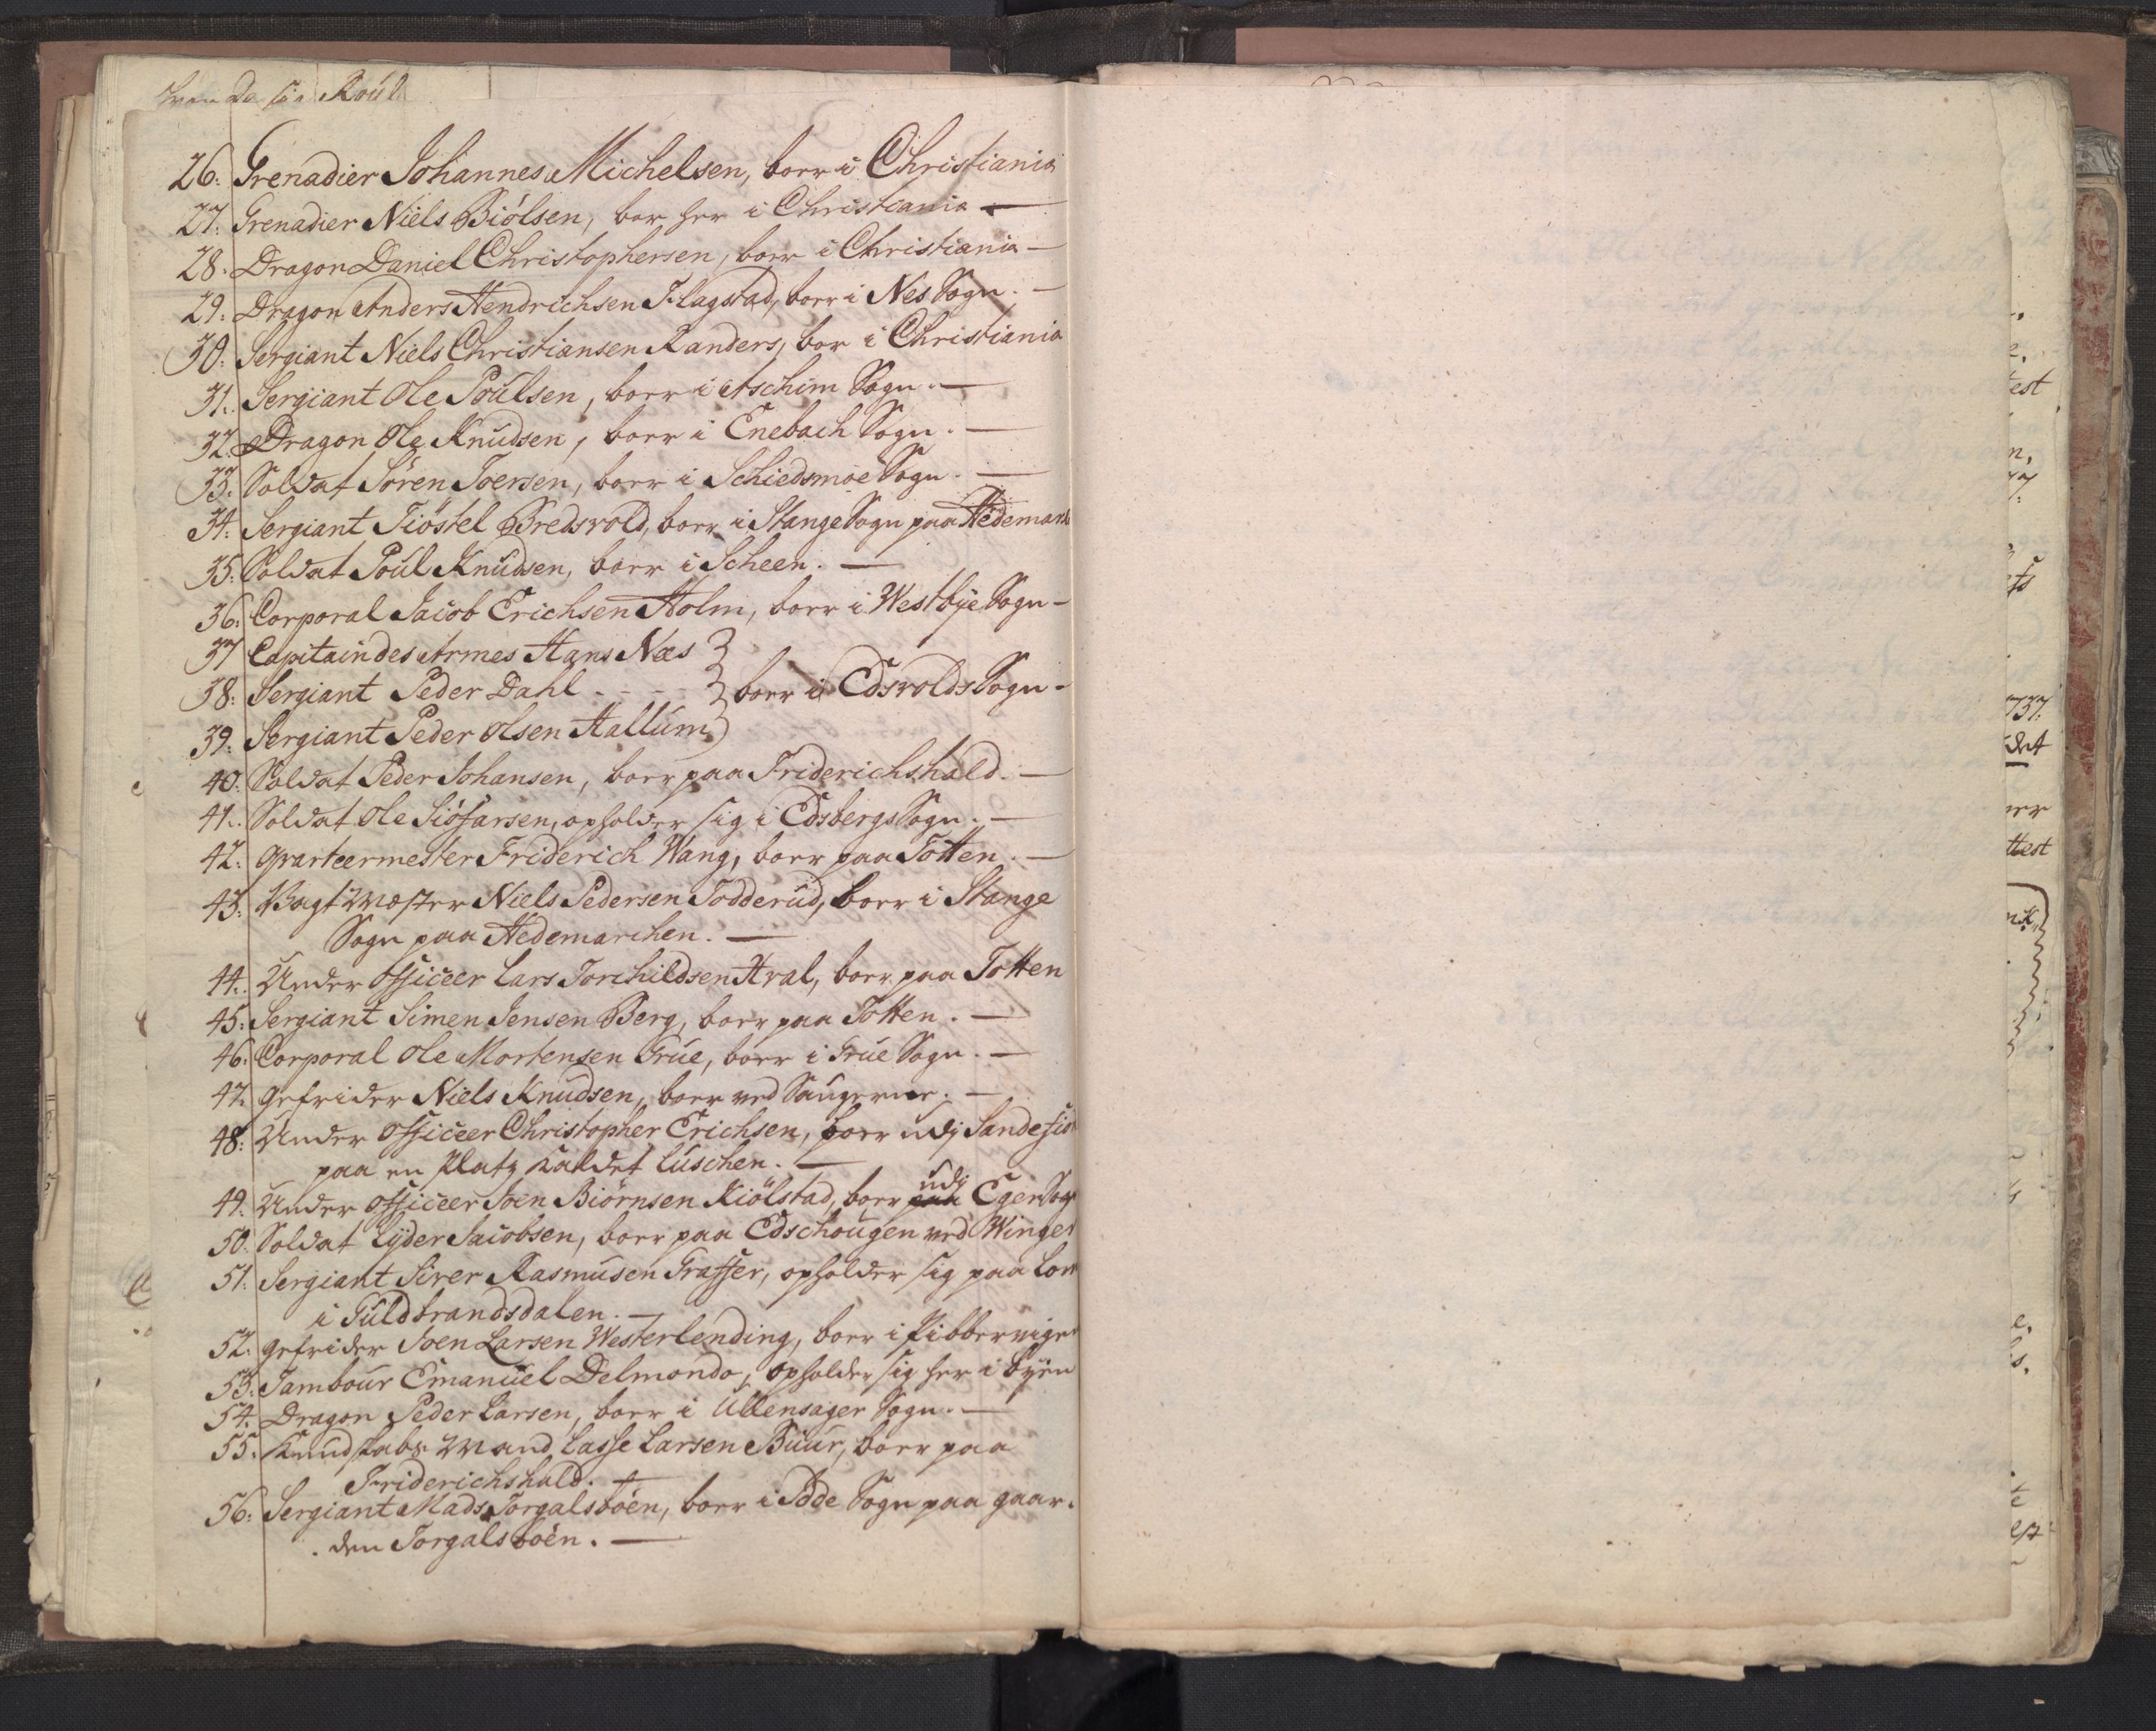 26. Grenadier Johannes Michelsen, boer i Christiania
27. Grenadier Niels Biölsen, bor her i Christiania —
28. Dragon Daniel Christophersen, boer i Christiania —
29. Dragon Anders Hendrichsen Flagstad, boer i Nes Sogn. —
30. Sergiant Niels Christiansen Randers, bor i Christiania
31. Sergiant Ole Poulsen, boer i Aschim Sogn. —
32. Dragon Ole Knudsen, boer i Enebach Sogn. —
33. Soldat Sören Joensen, boer i Schiedsmoe Sogn. —
34. Sergiant Tiöstel Bredsvold, boer i Stange Sogn paa Hedemark
35. Soldat Poul Knudsen, boer i Scheen. —
36. Corporal Jacob Erichsen Holm, boer i Westbye Sogn —
37 Capitain des Armes Hans Næs
38. Sergiant Peder Dahl - - - - boer i Edsvolds Sogn -
39. Sergiant Peder Olsen Hallum
40. Soldat Peder Johansen, boer paa Friderichshald. —
41. Soldat Ole Siöfarsen, opholder sig i Edsbergs Sogn. —
42. Qvarteermester Friderich Wang, boer paa Totten. —
43. Vagtmæster Niels Pedersen Todderud, boer i Stange
Sogn paa Hedemarchen. —
44. Under officeer Lars Torchildsen Hval, boer paa Totten
45. Sergiant Simen Jensen Berg, boer paa Totten. —
46. Corporal Ole Mortensen Grue, boer i Grue Sogn. —
47. Gefrider Niels Knudsen, boer ved Saugerne. —
48. Under officeer Christopher Erichsen, boer udj Sandefior
paa en Platz kaldet Luschen. —
49. Under officeer Joen Biörnsen Kiölstad, boer udj Eger Sogn
50. Soldat Lyder Jacobsen, boer paa Edschougen ved Winger
51. Sergiant Siver Rasmusen Graffer, opholder sig paa Lom
i Guldbrandsdalen. —
52. Gefrider Joen Larsen Westerlending, boer i Pibbervigen
53. Tambour Emanuel Delmondo, opholder sig her i Byen
54. Dragon Peder Larsen, boer i Ullensager Sogn. —
55. Kundskabs Mand Lasse Larsen Buur, boer paa
Friderichshald.
56. Sergiant Mads Torgalsböen, boer i Idde Sogn paa gaar-
den Torgalsböen. —